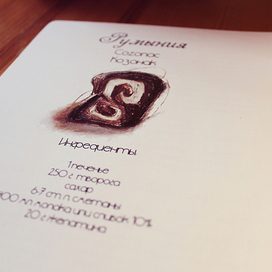 Румыния
Cozonac
Козонак
Ингредиенты
1 печенье
250 г творога
сахар
6-7 ст.л. сметаны
400 мл молока или сливок 10%
20 г желатина